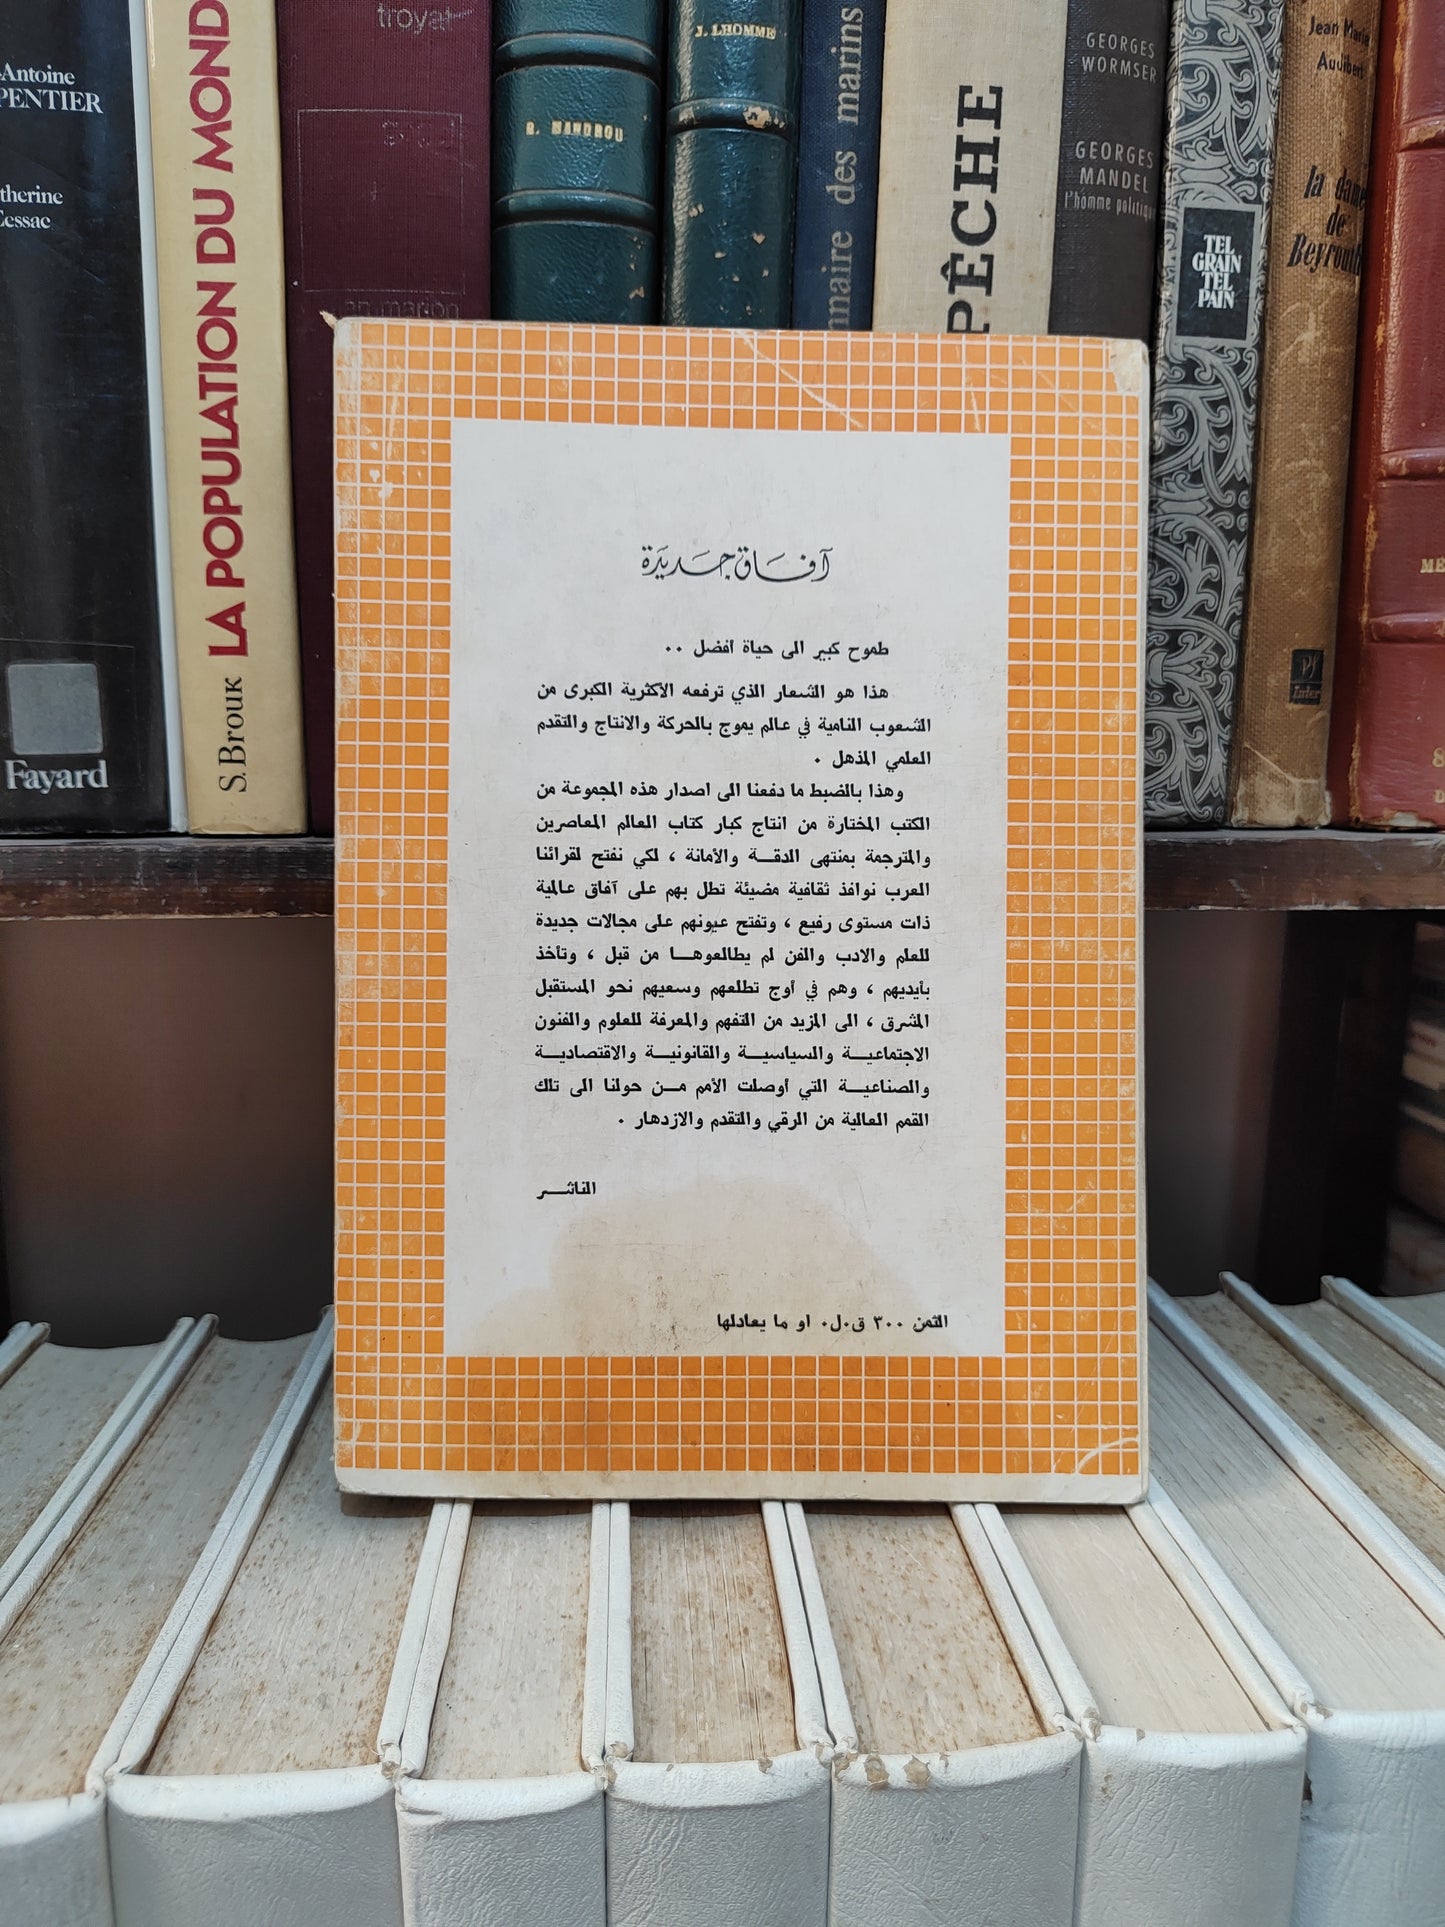 Antoine
PENTIER
therine
Cessac
Fayard
S. Brouk LA POPULATION DU MOND
troyat
R. MANDROU
J. LHOMME
nnaire des marins
PÊCHE
GEORGES
WORMSER
GEORGES
MANDEL
l'homme politique
TEL
GRAIN
TEL
PAIN
Jean Marie
Audibert
la dame
de
Beyrouth
آفاق جديدة
طموح كبير الى حياة افضل ٠٠
هذا هو الشعار الذي ترفعه الأكثرية الكبرى من
الشعوب النامية في عالم يموج بالحركة والانتاج والتقدم
العلمي المذهل ٠
وهذا بالضبط ما دفعنا الى اصدار هذه المجموعة من
الكتب المختارة من انتاج كبار كتاب العالم المعاصرين
والمترجمة بمنتهى الدقة والأمانة ، لكي نفتح لقرائنا
العرب نوافذ ثقافية مضيئة تطل بهم على آفاق عالمية
ذات مستوى رفيع ، وتفتح عيونهم على مجالات جديدة
للعلم والادب والفن لم يطالعوها من قبل ، وتأخذ
بأيديهم ، وهم في أوج تطلعهم وسعيهم نحو المستقبل
المشرق ، الى المزيد من التفهم والمعرفة للعلوم والفنون
الاجتماعية والسياسية والقانونية والاقتصادية
والصناعية التي أوصلت الأمم من حولنا الى تلك
القمم العالية من الرقي والتقدم والازدهار ٠
الناشر
الثمن ٣٠٠ ق٠ل٠ او ما يعادلها